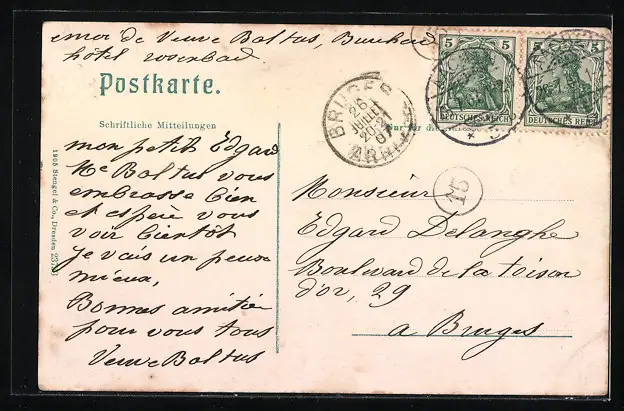 envoi de Veuve Baltus,
hôtel rosenbad
Postkarte.
Schriftliche Mitteilungen
Nur für die
mon petit Edgard
Me Baltus vous
embrasse bien
et espère vous
voir bientôt
je vais un peu
mieux,
Bonnes amitiés
pour vous tous
Veuve Baltus
1905 Stengel & Co., Dresden
BRUGES
26
JUILLET
20-21
07
5 5
DEUTSCHES REICH
5 5
DEUTSCHES REICH
15
Monsieur
Edgard Delanghe
Boulevard de la toison
d'or, 29
a Bruges